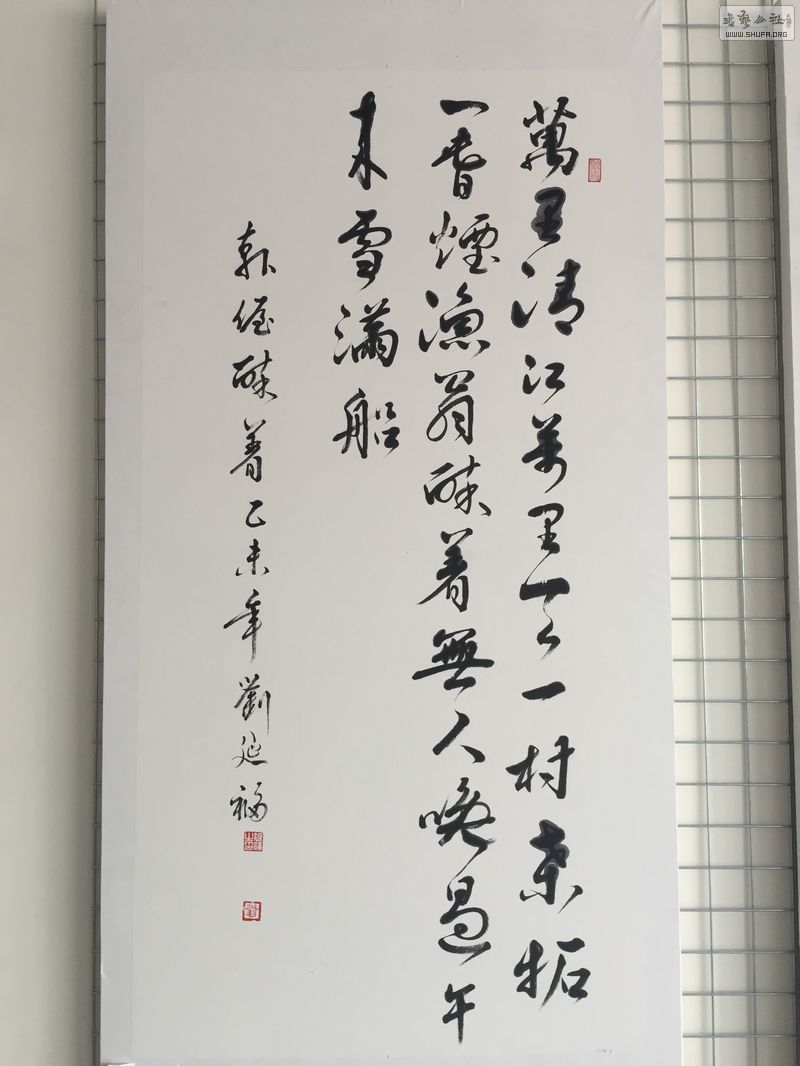 書藝公社
WWW.SHUFA.ORG
萬里清江萬里天一村桑柘
一煙漁翁醉着無人喚過午
来雪滿船
韩偓醉着乙未年劉延福